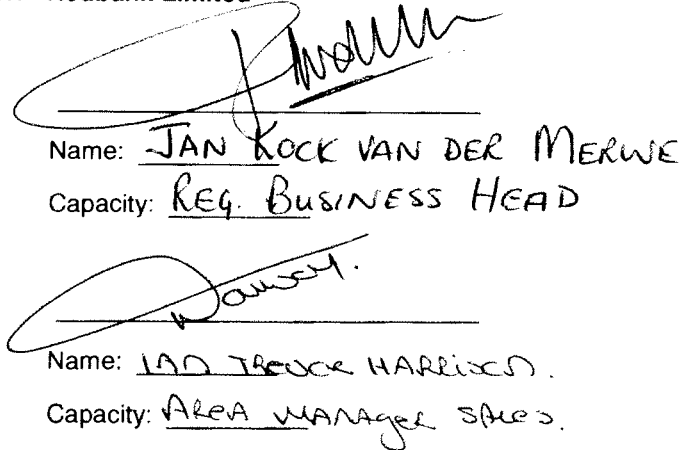 Nedbank Limited
Name: JAN KOCK VAN DER MERWE
Capacity: REG. BUSINESS HEAD
Name: IAN TREVOR HARRISON.
Capacity: AREA MANAGER SALES.